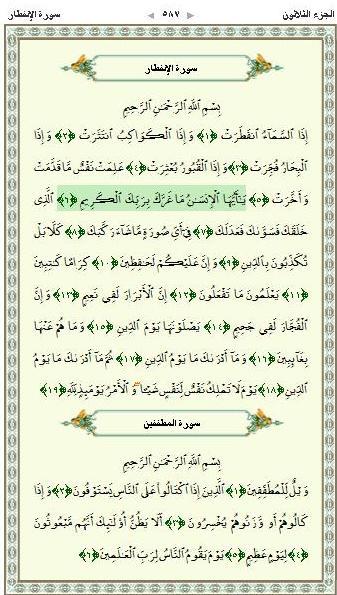 الجزء الثلاثون ◀ ٥٨٧ ▶ سورة الإنفطار
سورة الإنفطار
بِسْمِ ٱللَّهِ ٱلرَّحْمَٰنِ ٱلرَّحِيمِ
إِذَا ٱلسَّمَآءُ ٱنفَطَرَتْ ﴿١﴾ وَإِذَا ٱلْكَوَاكِبُ ٱنتَثَرَتْ ﴿٢﴾ وَإِذَا
ٱلْبِحَارُ فُجِّرَتْ ﴿٣﴾ وَإِذَا ٱلْقُبُورُ بُعْثِرَتْ ﴿٤﴾ عَلِمَتْ نَفْسٌ مَّا قَدَّمَتْ
وَأَخَّرَتْ ﴿٥﴾ يَٰٓأَيُّهَا ٱلْإِنسَٰنُ مَا غَرَّكَ بِرَبِّكَ ٱلْكَرِيمِ ﴿٦﴾ ٱلَّذِى
خَلَقَكَ فَسَوَّىٰكَ فَعَدَلَكَ ﴿٧﴾ فِىٓ أَىِّ صُورَةٍ مَّا شَآءَ رَكَّبَكَ ﴿٨﴾ كَلَّا بَلْ
تُكَذِّبُونَ بِٱلدِّينِ ﴿٩﴾ وَإِنَّ عَلَيْكُمْ لَحَٰفِظِينَ ﴿١٠﴾ كِرَامًا كَٰتِبِينَ
﴿١١﴾ يَعْلَمُونَ مَا تَفْعَلُونَ ﴿١٢﴾ إِنَّ ٱلْأَبْرَارَ لَفِى نَعِيمٍ ﴿١٣﴾ وَإِنَّ
ٱلْفُجَّارَ لَفِى جَحِيمٍ ﴿١٤﴾ يَصْلَوْنَهَا يَوْمَ ٱلدِّينِ ﴿١٥﴾ وَمَا هُمْ عَنْهَا
بِغَآئِبِينَ ﴿١٦﴾ وَمَآ أَدْرَىٰكَ مَا يَوْمُ ٱلدِّينِ ﴿١٧﴾ ثُمَّ مَآ أَدْرَىٰكَ مَا يَوْمُ
ٱلدِّينِ ﴿١٨﴾ يَوْمَ لَا تَمْلِكُ نَفْسٌ لِّنَفْسٍ شَيْـًٔا وَٱلْأَمْرُ يَوْمَئِذٍ لِّلَّهِ ﴿١٩﴾
سورة المطففين
بِسْمِ ٱللَّهِ ٱلرَّحْمَٰنِ ٱلرَّحِيمِ
وَيْلٌ لِّلْمُطَفِّفِينَ ﴿١﴾ ٱلَّذِينَ إِذَا ٱكْتَالُوا۟ عَلَى ٱلنَّاسِ يَسْتَوْفُونَ ﴿٢﴾ وَإِذَا
كَالُوهُمْ أَو وَّزَنُوهُمْ يُخْسِرُونَ ﴿٣﴾ أَلَا يَظُنُّ أُو۟لَٰٓئِكَ أَنَّهُم مَّبْعُوثُونَ
﴿٤﴾ لِيَوْمٍ عَظِيمٍ ﴿٥﴾ يَوْمَ يَقُومُ ٱلنَّاسُ لِرَبِّ ٱلْعَٰلَمِينَ ﴿٦﴾